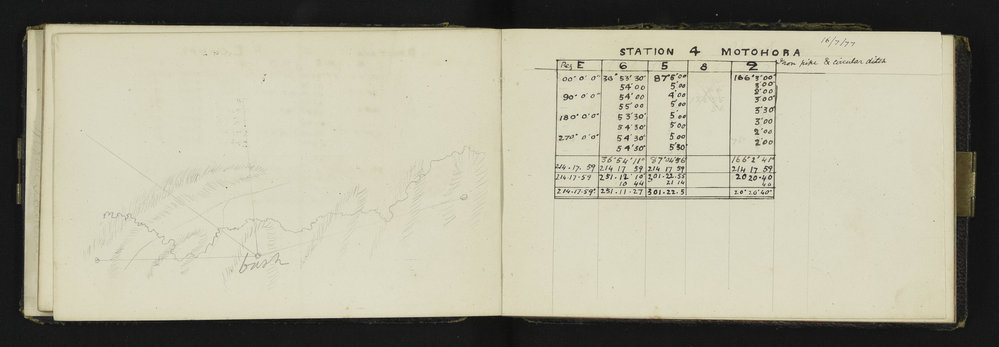 bush
16/7/77
STATION 4 MOTOHORA
Iron pipe & circular ditch
Reg E 6 5 8 2
00° 0' 0" 36° 53' 30" 87° 5' 00 166° 3' 00"
54' 00 5' 00 3' 00
90° 0' 0" 54' 00 4' 00 3' 00
55' 00 5' 00 3' 30
180° 0' 0" 53' 30' 5' 00 3' 00
54' 30' 5' 00 2' 00
270° 0' 0" 54' 30" 5' 00 2' 00
54' 30" 5' 30"
36° 54' 11" 87° 04' 56 166° 2' 41"
214. 17. 59 214 17 59 214 17 59 214 17 59
214.17.59 251.12.10 301.22.55 20 20.40
10 44 21 14 40
214.17.59' 251.11.27 301.22.5 20° 20' 40"